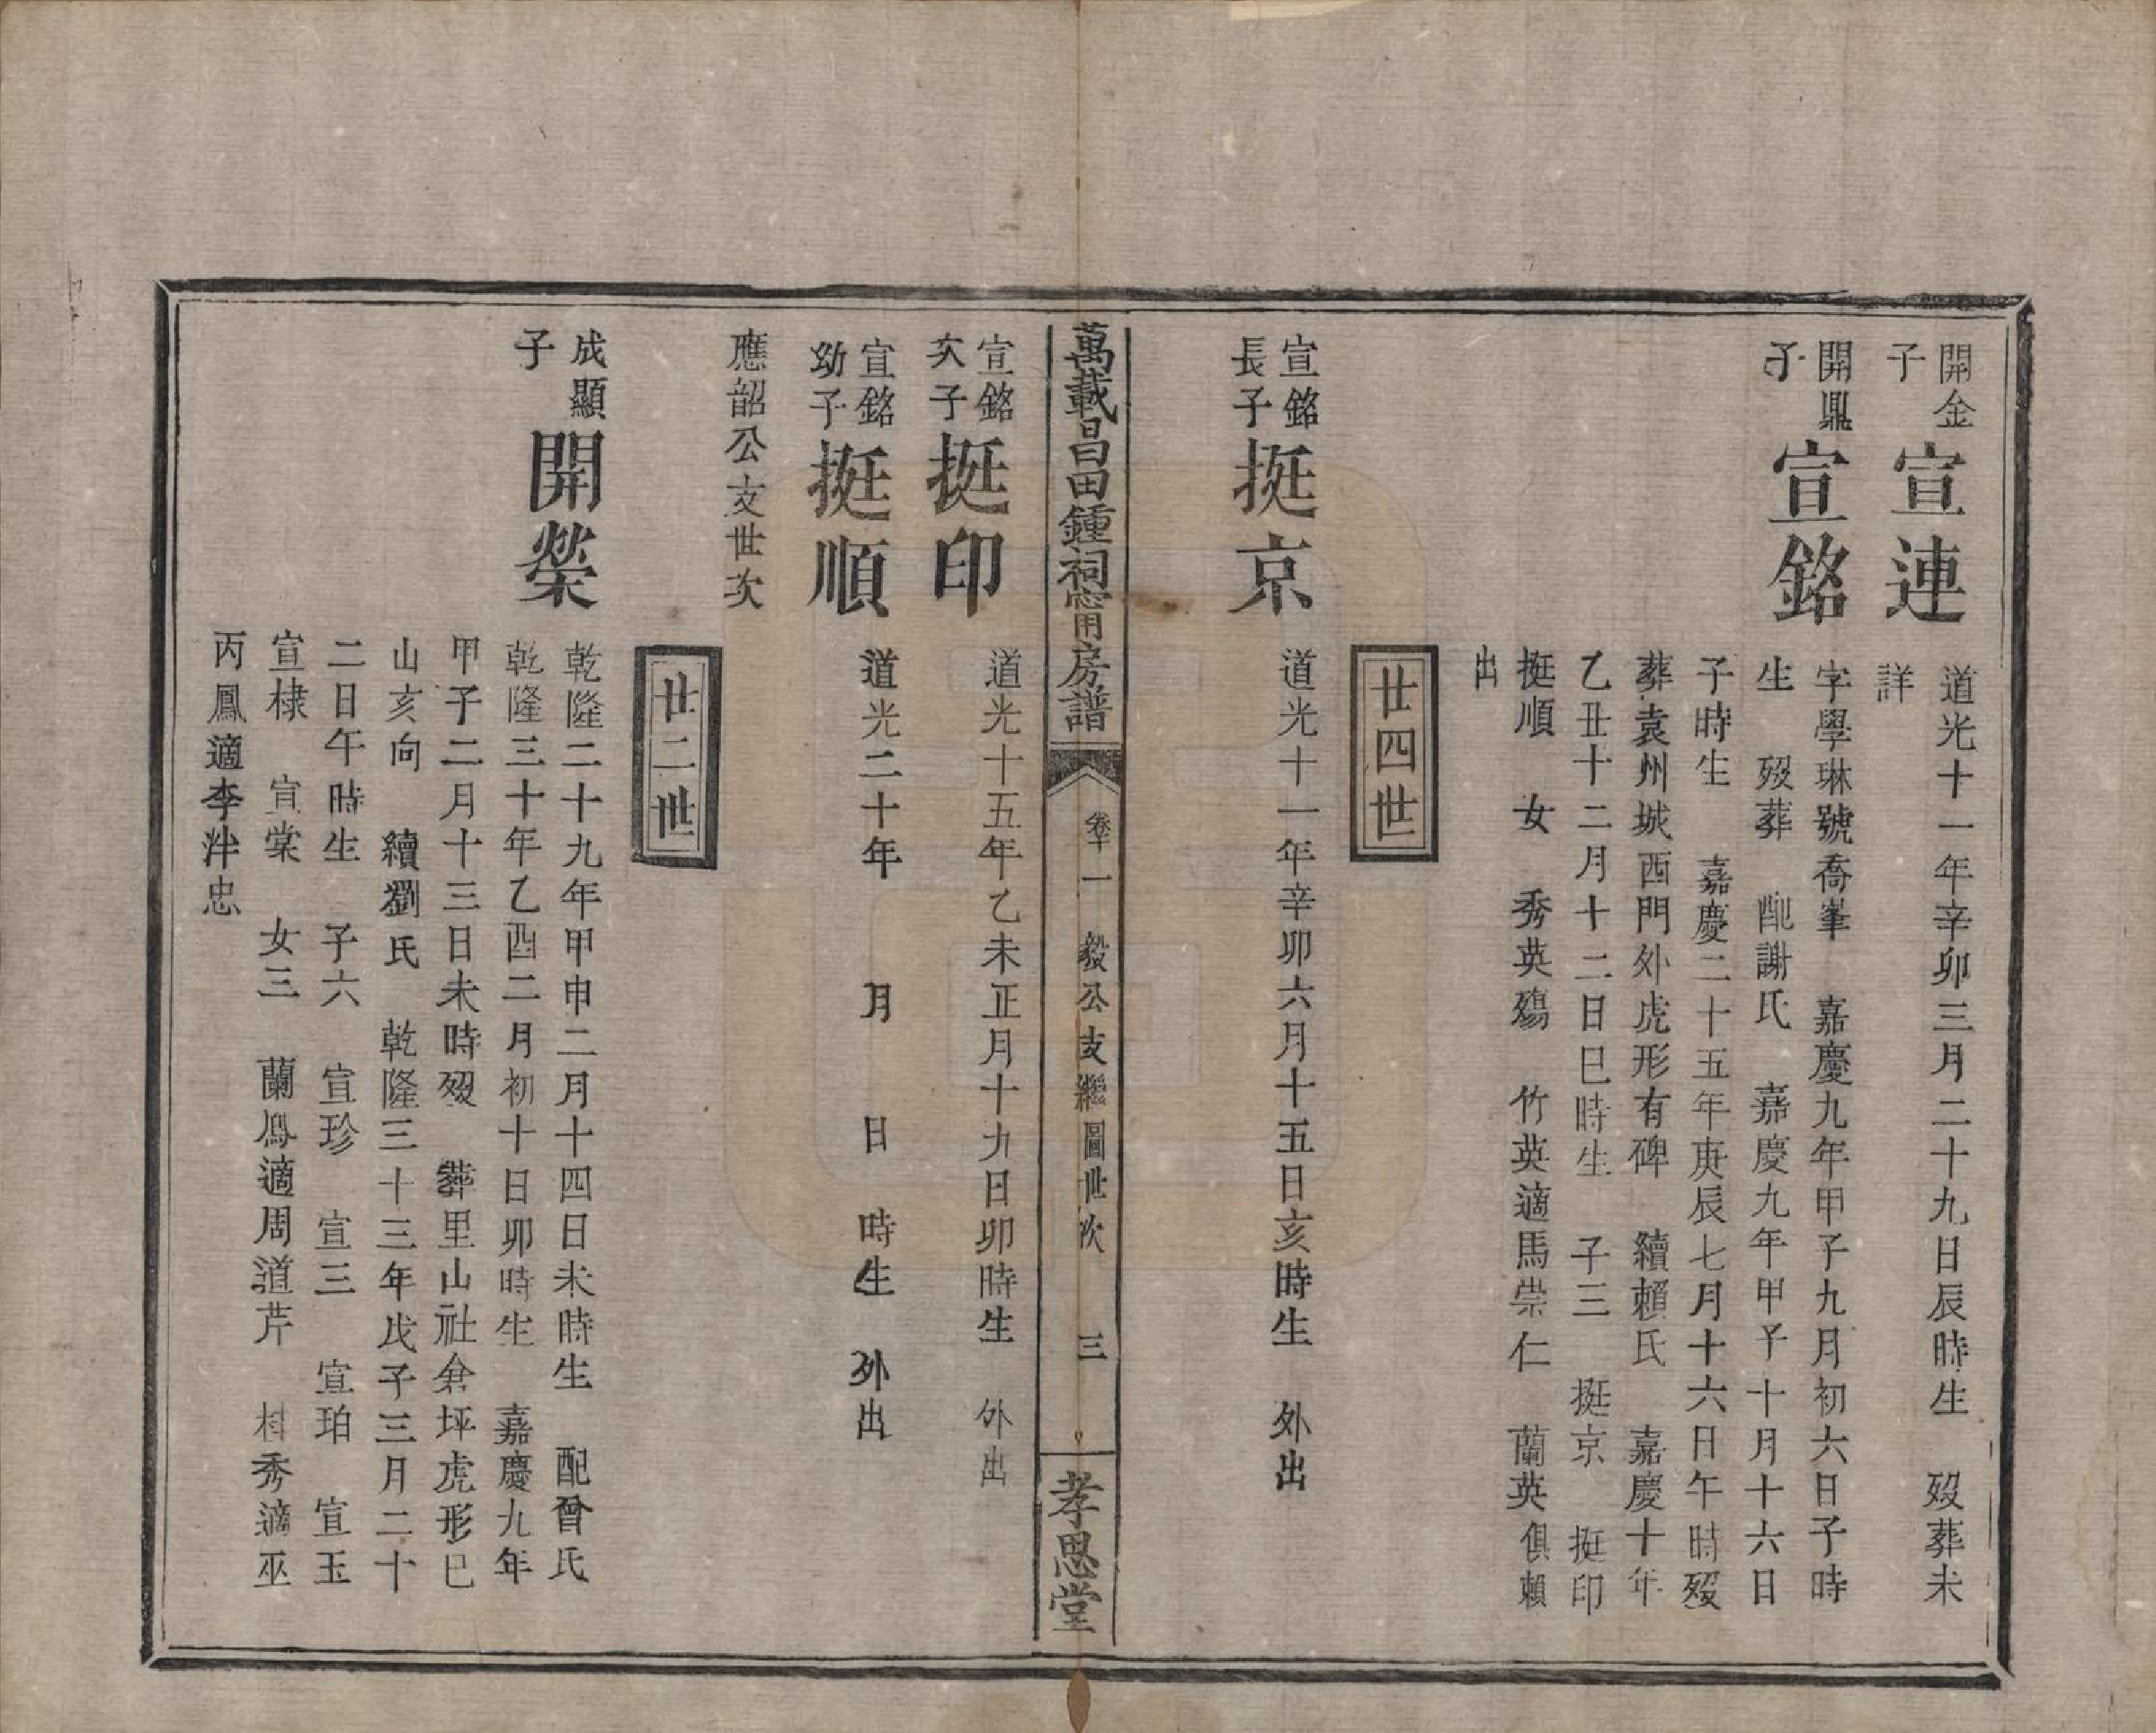 開金
子
宣連
道光十一年辛卯三月二十九日辰時生　歿葬未
詳
開鼎
子
宣銘
字學琳號喬峯　嘉慶九年甲子九月初六日子時
生　歿葬　配謝氏　嘉慶九年甲子十月十六日
子時生　嘉慶二十五年庚辰七月十六日午時歿
葬袁州城西門外虎形有碑　續賴氏　嘉慶十年
乙丑十二月十二日巳時生　子三　挺京　挺印
挺順　女　秀英殤　竹英適馬崇仁　蘭英俱賴
出
廿四世
宣銘
長子
挺京
道光十一年辛卯六月十五日亥時生　外出
萬載昌田鍾祠甯用房譜　卷十一　毅公支繼圖世次　三　孝思堂
宣銘
次子
挺印
道光十五年乙未正月十九日卯時生　外出
宣銘
幼子
挺順
道光二十年　月　日　時生　外出
應韶公支世次
廿二世
成顯
子
開榮
乾隆二十九年甲申二月十四日未時生　配曾氏
乾隆三十年乙酉二月初十日卯時生　嘉慶九年
甲子二月十三日未時歿　葬里山社倉坪虎形巳
山亥向　續劉氏　乾隆三十三年戊子三月二十
二日午時生　子六　宣珍　宣三　宣珀　宣玉
宣棣　宣棠　女三　蘭鳳適周道芹　桂秀適巫
丙鳳適李泮忠